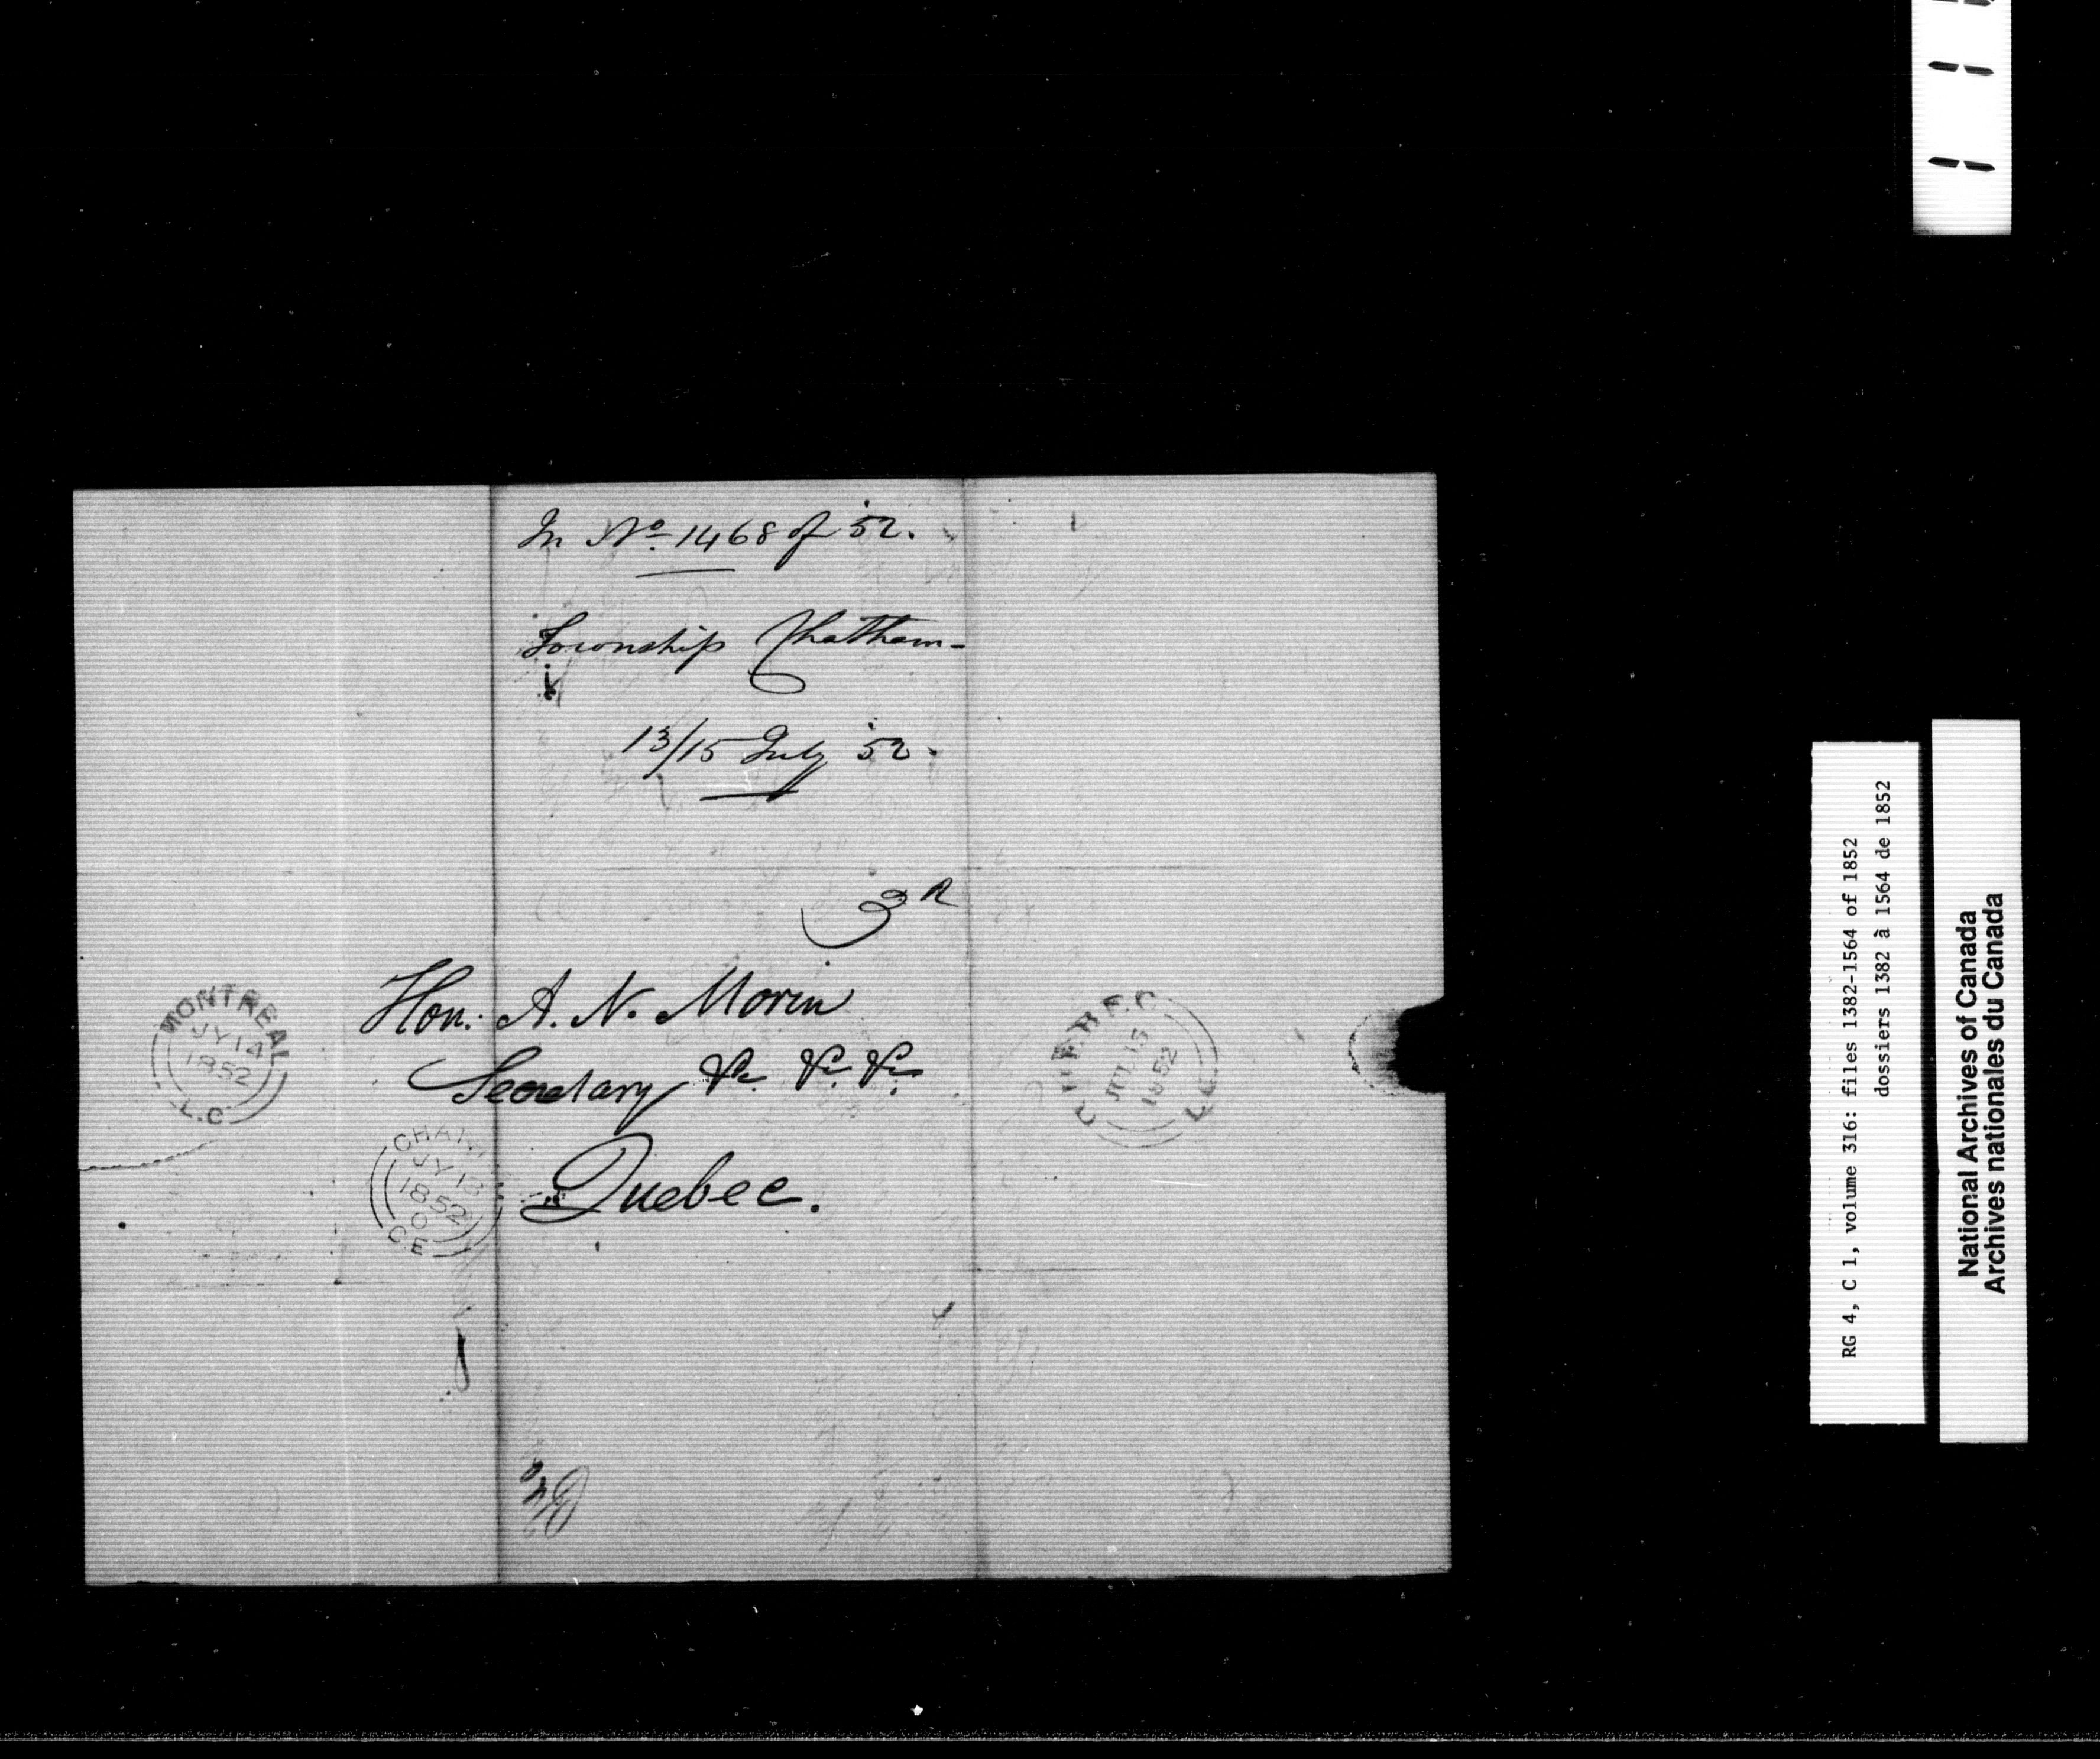 In No. 1468 of '52.
Township Chatham-
13/15 July '52.
Hon: A. N. Morin
Secretary &c &c. &c.
Quebec.
MONTREAL
JY 14
1852
L.C
JY 13
1852
C.E
QUEBEC
JUL 15
1852
L.C.
RG 4, C 1, volume 316: files 1382-1564 of 1852
dossiers 1382 à 1564 de 1852
National Archives of Canada
Archives nationales du Canada